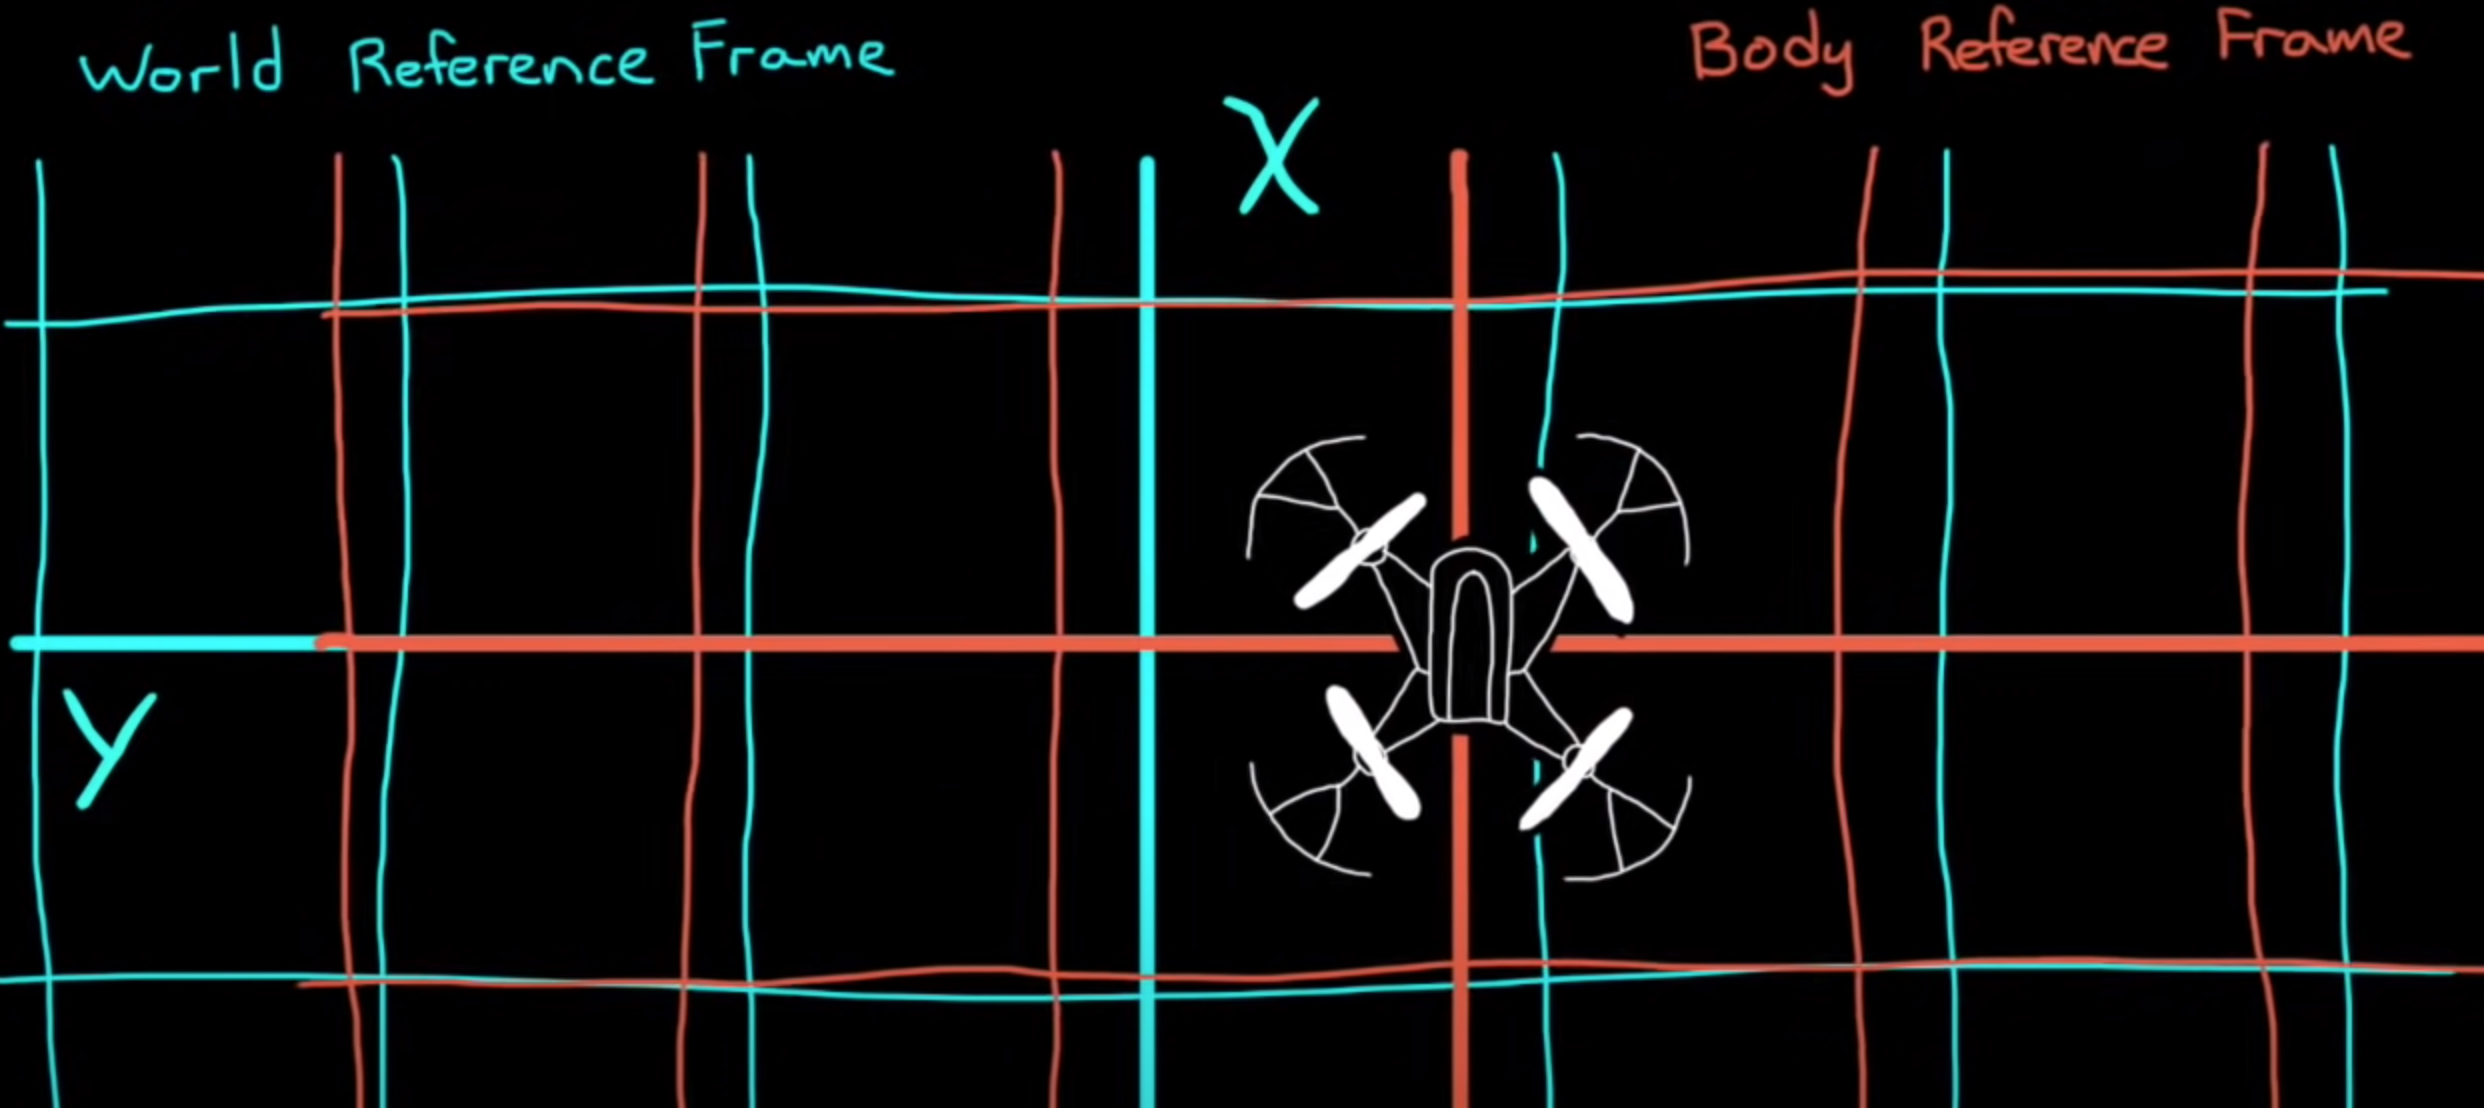 World Reference Frame
Body Reference Frame
X
Y